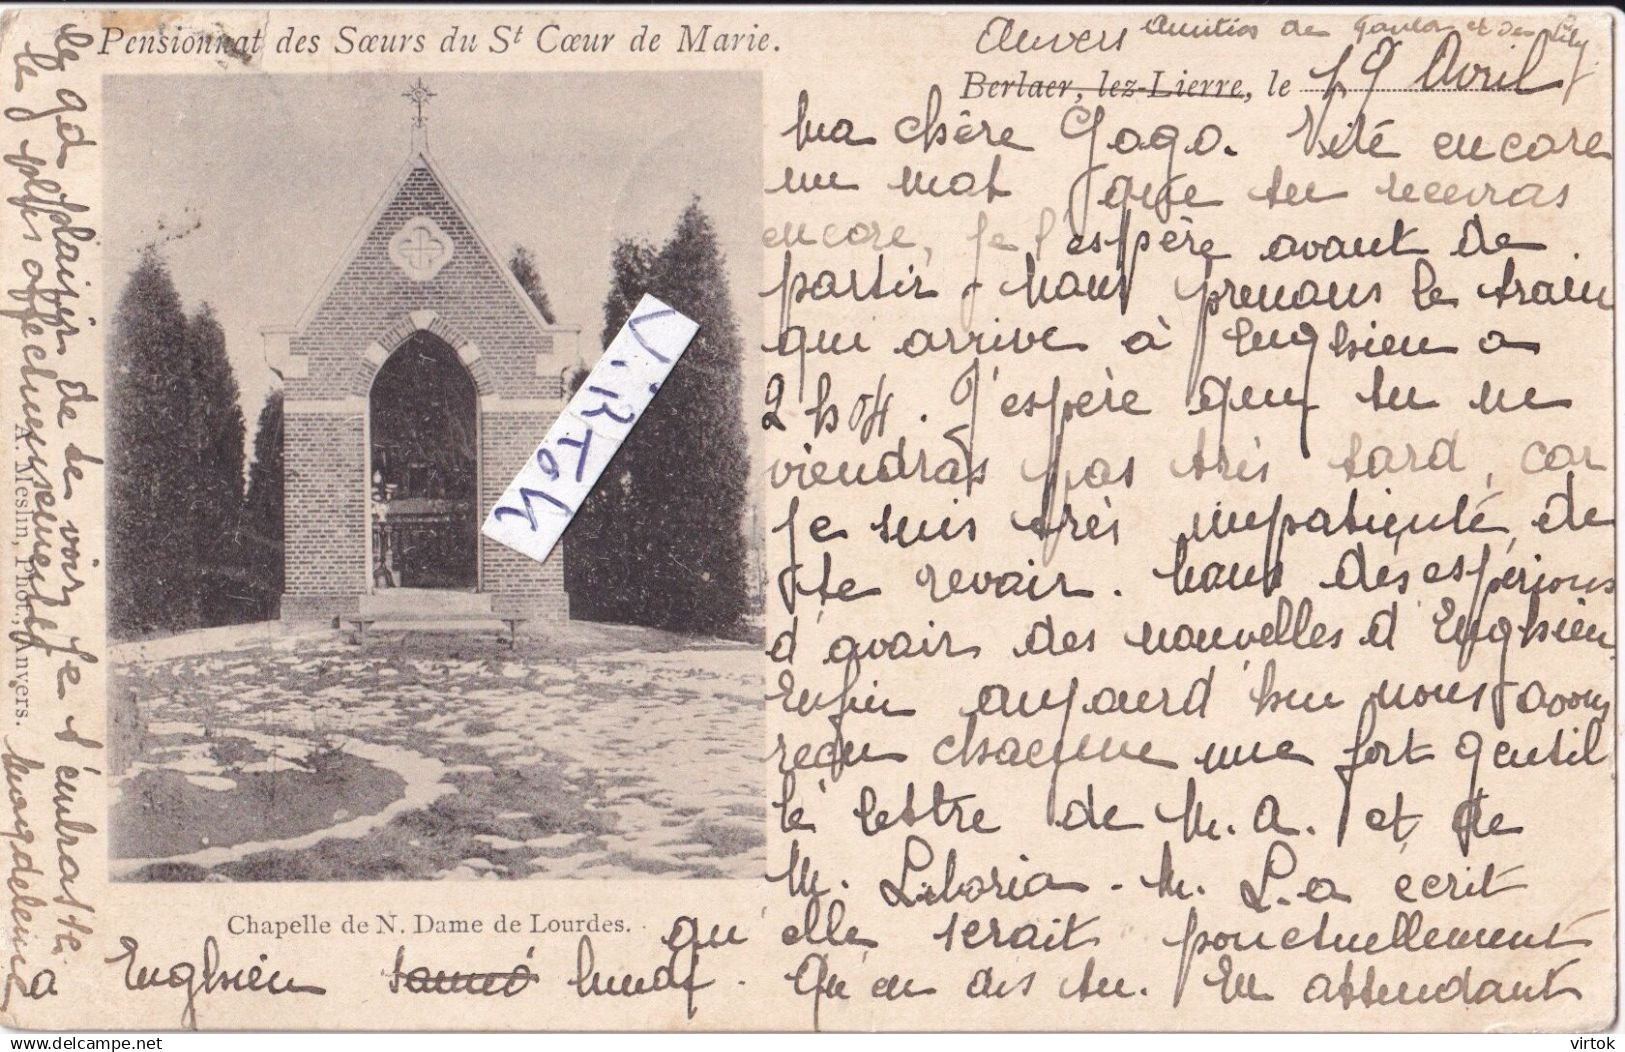 Pensionnat des Sœurs du St Cœur de Marie.
Anvers
Amitiés de Gaston et de Lily
Berlaer, lez-Lierre, le 19 Avril
Ma chère Gogo. Vite encore
un mot que tu recevras
encore, je l'espère avant de
partir - nous prenons le train
qui arrive à Enghien a
2 h 04. J'espère que tu ne
viendras pas très tard, car
je suis très impatiente de
te revoir. Nous désespérions
d'avoir des nouvelles d'Enghien
Enfin aujourd'hui nous avons
reçu chacune une fort gentil
le lettre de M. A. et de
M. Liboria - M. L. a écrit
qu'elle serait ponctuellement
a Enghien samed lundi. Qu'en dis tu. En attendant
le gd plaisir de te voir je t'embrasse
le plus affectueusement
Magdeleine
Chapelle de N. Dame de Lourdes.
A. Meslin, Phot., Anvers.
ViRToU